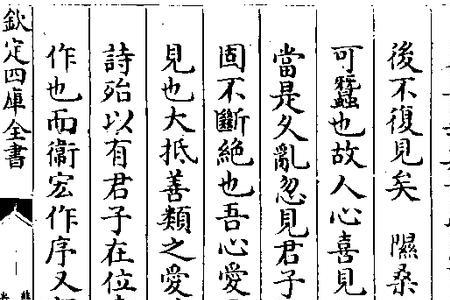 後不復見矣　隰桑
可蠶也故人心喜見
當是久亂忽見君子
固不斷絶也吾心愛
見也大抵善類之愛
詩殆以有君子在位
作也而衛宏作序又
欽定四庫全書